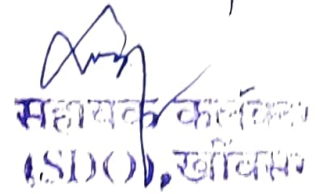 सहायक कलेक्टर
(SDO), खींवसर